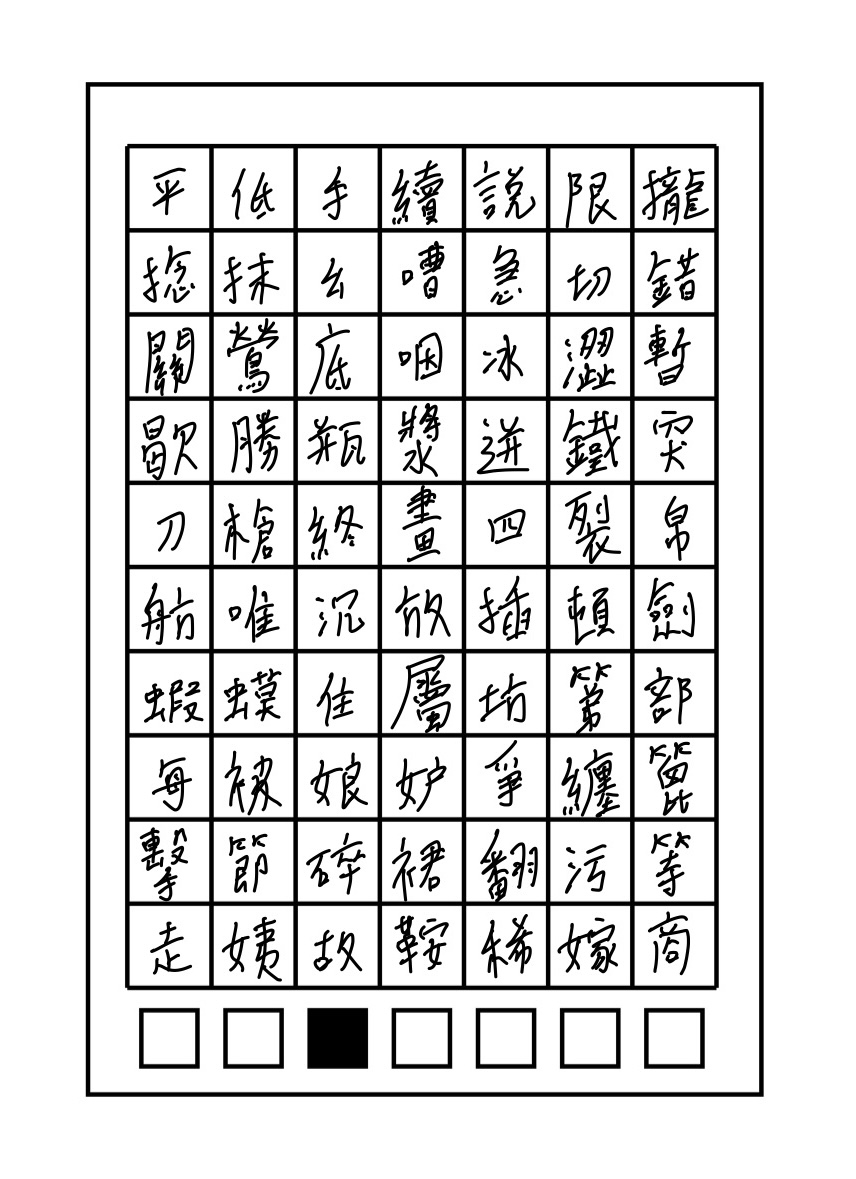 平低手續說限攏
捻抹幺嘈急切錯
關鶯底咽冰澀暫
歇勝瓶漿迸鐵突
刀槍終畫四裂帛
舫唯沉放插頓劍
蝦蟆住屬坊第部
每被娘妒爭纏篦
擊節碎裙翻污等
走姨故鞍稀嫁商